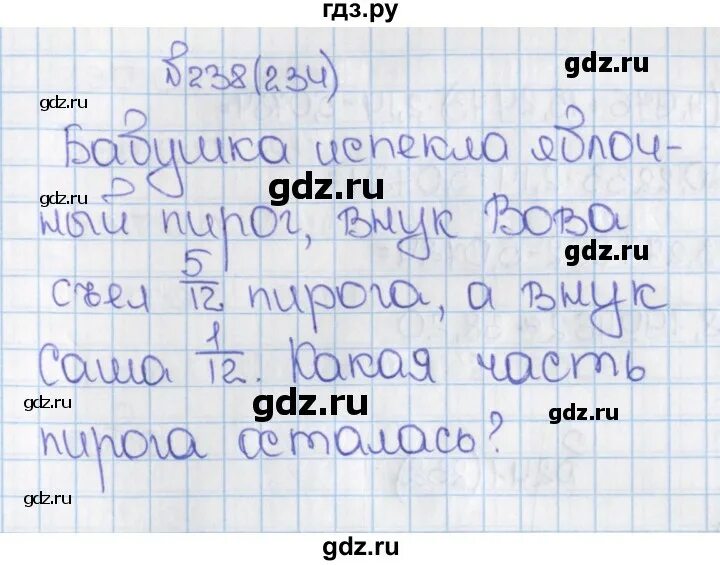 гдз.ру
№238(234)
gdz.ru
gdz.ru
Бабушка испекла яблоч-
gdz.ru
gdz.ru
ный пирог, внук Вова
gdz.ru
съел 5/12 пирога, а внук
gdz.ru
Саша 1/12. Какая часть
gdz.ru
gdz.ru
gdz.ru
пирога осталась?
gdz.ru
gdz.ru
gdz.ru